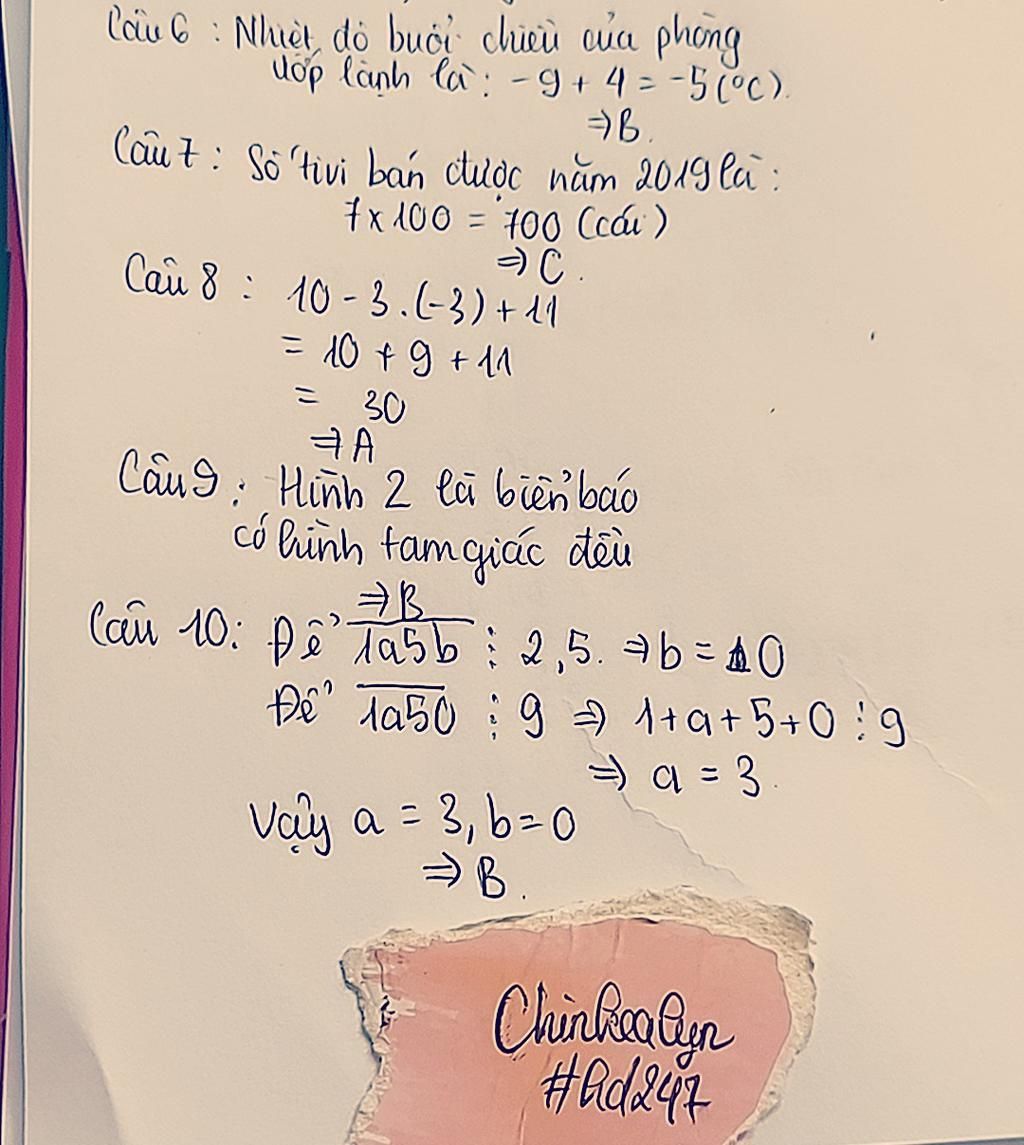 Câu 6 : Nhiệt độ buổi chiều của phòng
ướp lạnh là : -9 + 4 = -5 (°C).
⇒ B.
Câu 7 : Số tivi bán được năm 2019 là :
7 x 100 = 700 (cái)
⇒ C.
Câu 8 : 10 - 3 . (-3) + 11
= 10 + 9 + 11
= 30
⇒ A
Câu 9 : Hình 2 là biển báo
có hình tam giác đều
⇒ B
Câu 10 : Để 1a5b ⋮ 2, 5. ⇒ b = 0
Để 1a50 ⋮ 9 ⇒ 1 + a + 5 + 0 ⋮ 9
⇒ a = 3.
Vậy a = 3, b = 0
⇒ B.
#Ad247